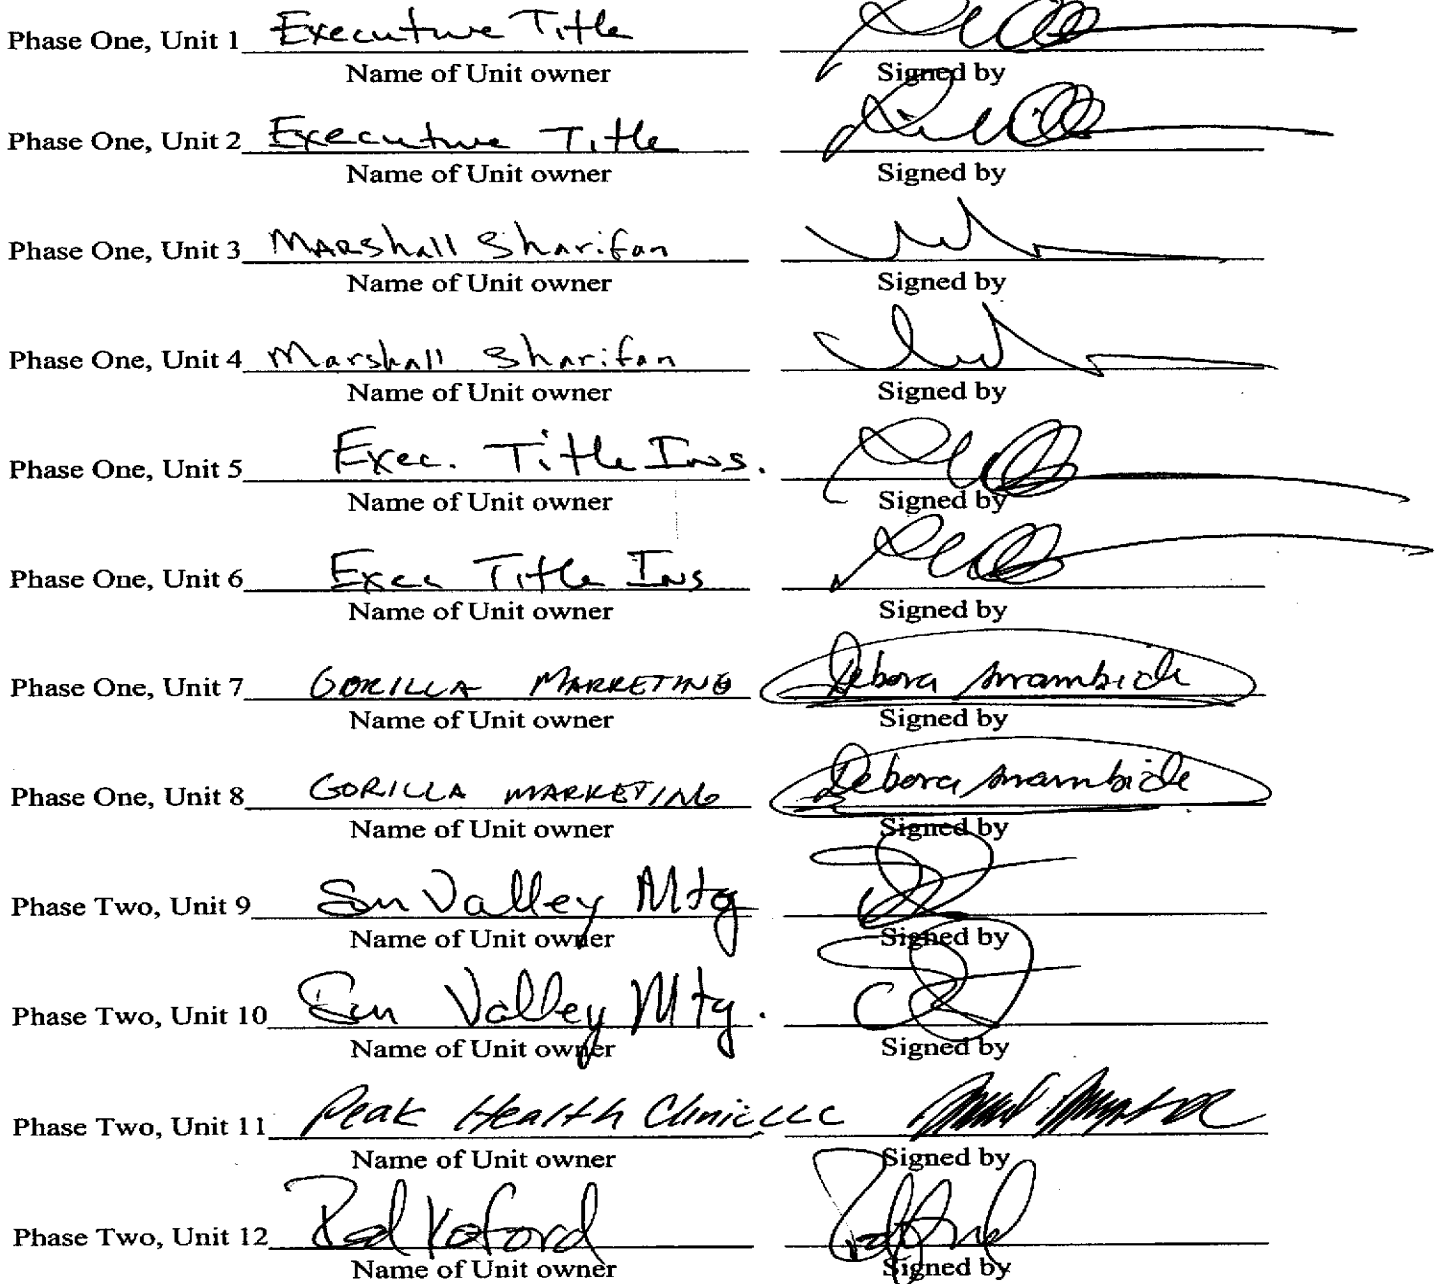 Phase One, Unit 1 Executive Title
Name of Unit owner Signed by
Phase One, Unit 2 Executive Title
Name of Unit owner Signed by
Phase One, Unit 3 Marshall Sharifan
Name of Unit owner Signed by
Phase One, Unit 4 Marshall Sharifan
Name of Unit owner Signed by
Phase One, Unit 5 Exec. Title Ins.
Name of Unit owner Signed by
Phase One, Unit 6 Exec Title Ins
Name of Unit owner Signed by
Phase One, Unit 7 GORILLA MARKETING Debora
Name of Unit owner Signed by
Phase One, Unit 8 GORILLA MARKETING Debora
Name of Unit owner Signed by
Phase Two, Unit 9 Sun Valley Mtg
Name of Unit owner Signed by
Phase Two, Unit 10 Sun Valley Mtg.
Name of Unit owner Signed by
Phase Two, Unit 11 Peak Health Clinic LLC
Name of Unit owner Signed by
Phase Two, Unit 12 Koford
Name of Unit owner Signed by